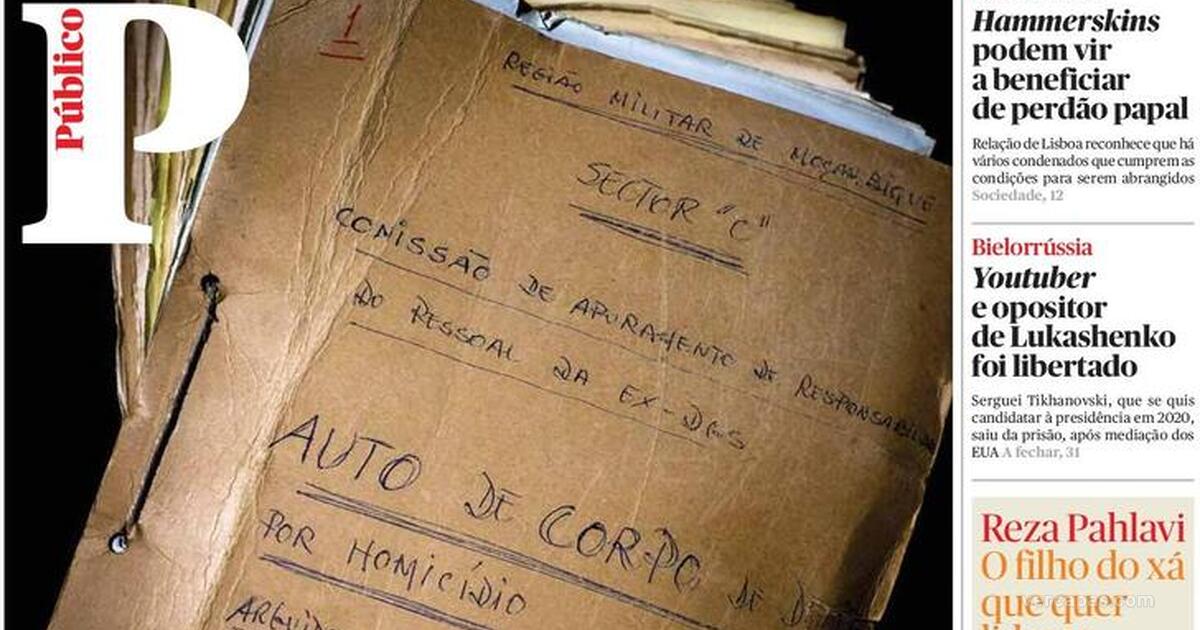 Público
P
1
REGIÃO MILITAR DE MOÇAMBIQUE
SECTOR "C"
COMISSÃO DE APURAMENTO DE
DO PESSOAL DA EX-DGS
AUTO DE CORPO DE
POR HOMICÍDIO
Hammerskins
podem vir
a beneficiar
de perdão papal
Relação de Lisboa reconhece que há
vários condenados que cumprem as
condições para serem abrangidos
Sociedade, 12
Bielorrússia
Youtuber
e opositor
de Lukashenko
foi libertado
Serguei Tikhanovski, que se quis
candidatar à presidência em 2020,
saiu da prisão, após mediação dos
EUA A fechar, 31
Reza Pahlavi
O filho do xá
que quer